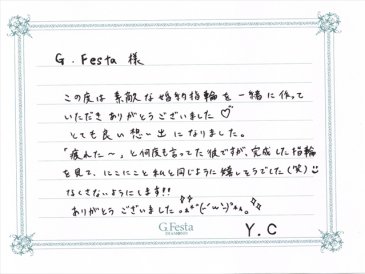 G.Festa 様
この度は 素敵な婚約指輪を一緒に作って
いただきありがとうございました♡
とても良い想い出になりました。
「疲れた〜」と何度も言ってた彼ですが、完成した指輪
を見て、にこにこと私と同じように嬉しそうでした(笑)☺
なくさないようにします!!
ありがとうございました｡*°(´ω`)°*｡
Y.C
G.Festa